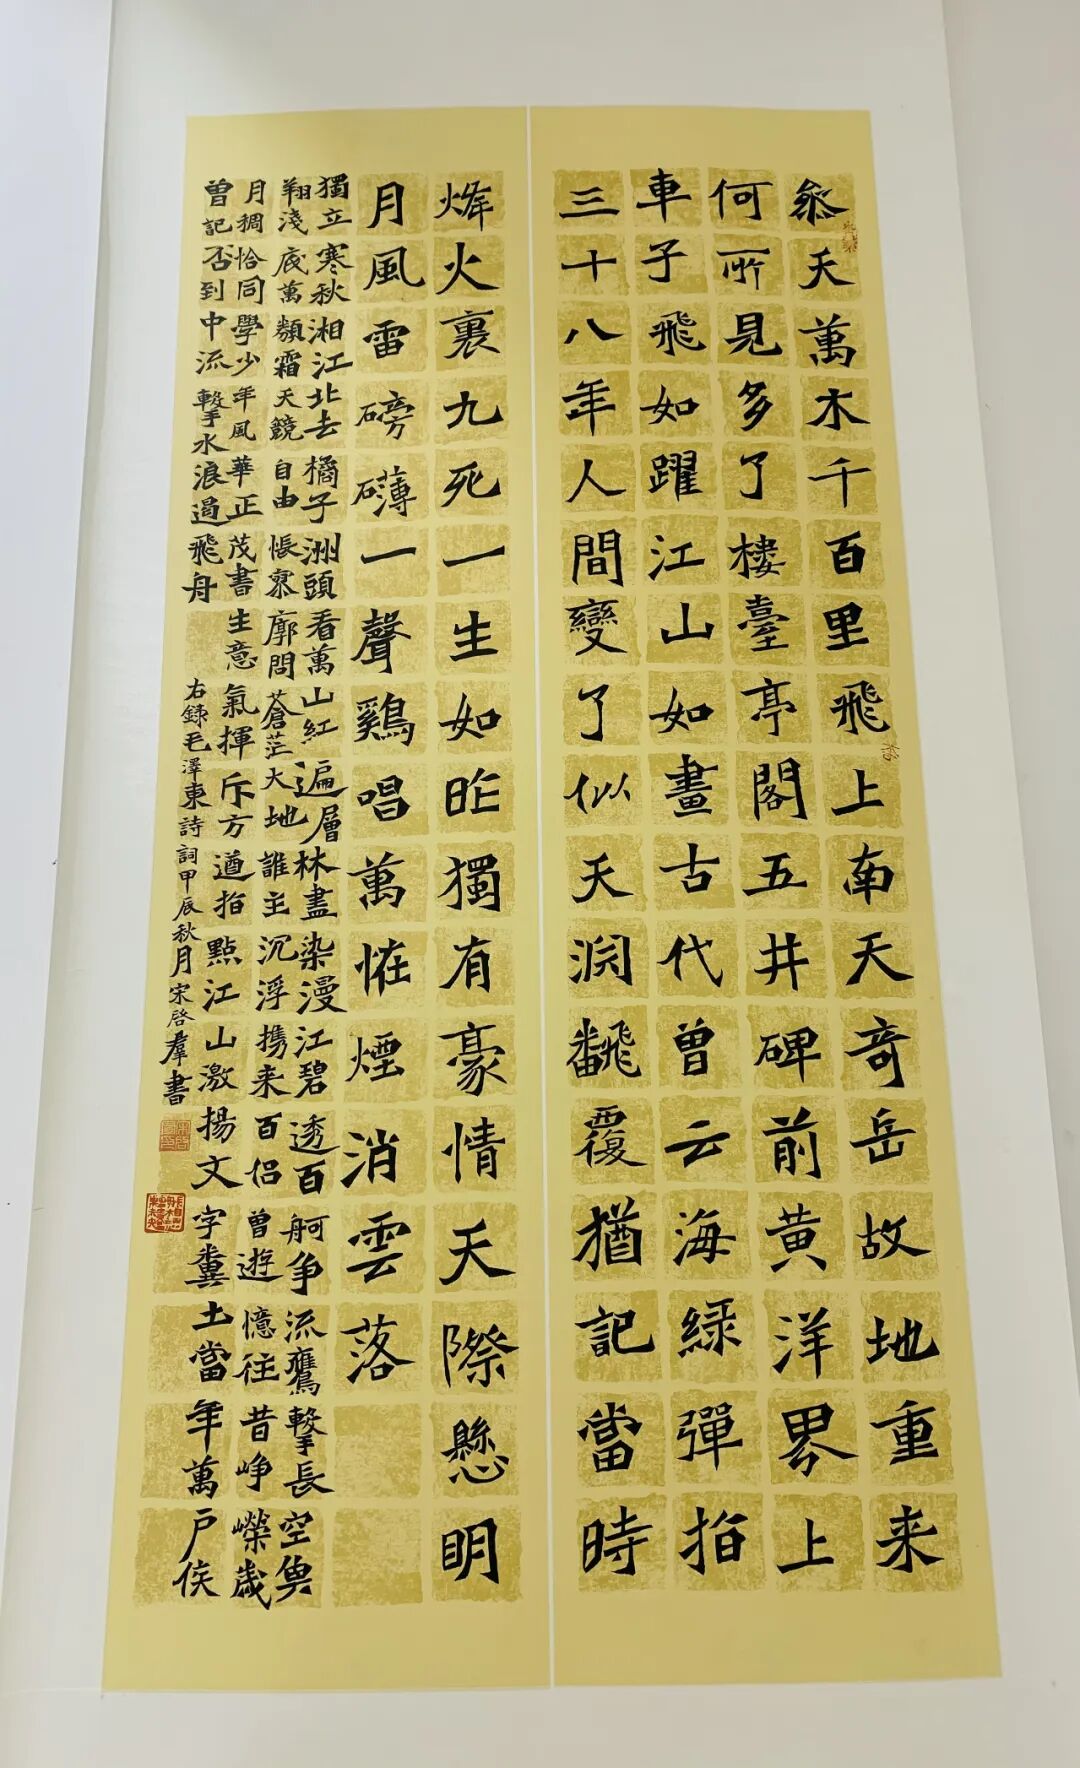 叅天萬木千百里飛上南天奇岳故地重来
何所見多了樓臺亭閣五井碑前黄洋界上
車子飛如躍江山如畫古代曾云海綠彈指
三十八年人間變了似天淵翻覆猶記當時
烽火裏九死一生如昨獨有豪情天際懸明
月風雷磅礴一聲鷄唱萬怪煙消雲落
獨立寒秋湘江北去橘子洲頭看萬山紅遍層林盡染漫江碧透百舸争流鷹擊長空魚
翔淺底萬類霜天競自由悵寥廓問蒼茫大地誰主沉浮携来百侣曾遊憶往昔崢嶸歲
月稠恰同學少年風華正茂書生意氣揮斥方遒指點江山激揚文字糞土當年萬户侯
曾記否到中流擊水浪遏飛舟
右録毛澤東詩詞甲辰秋月宋啓羣書